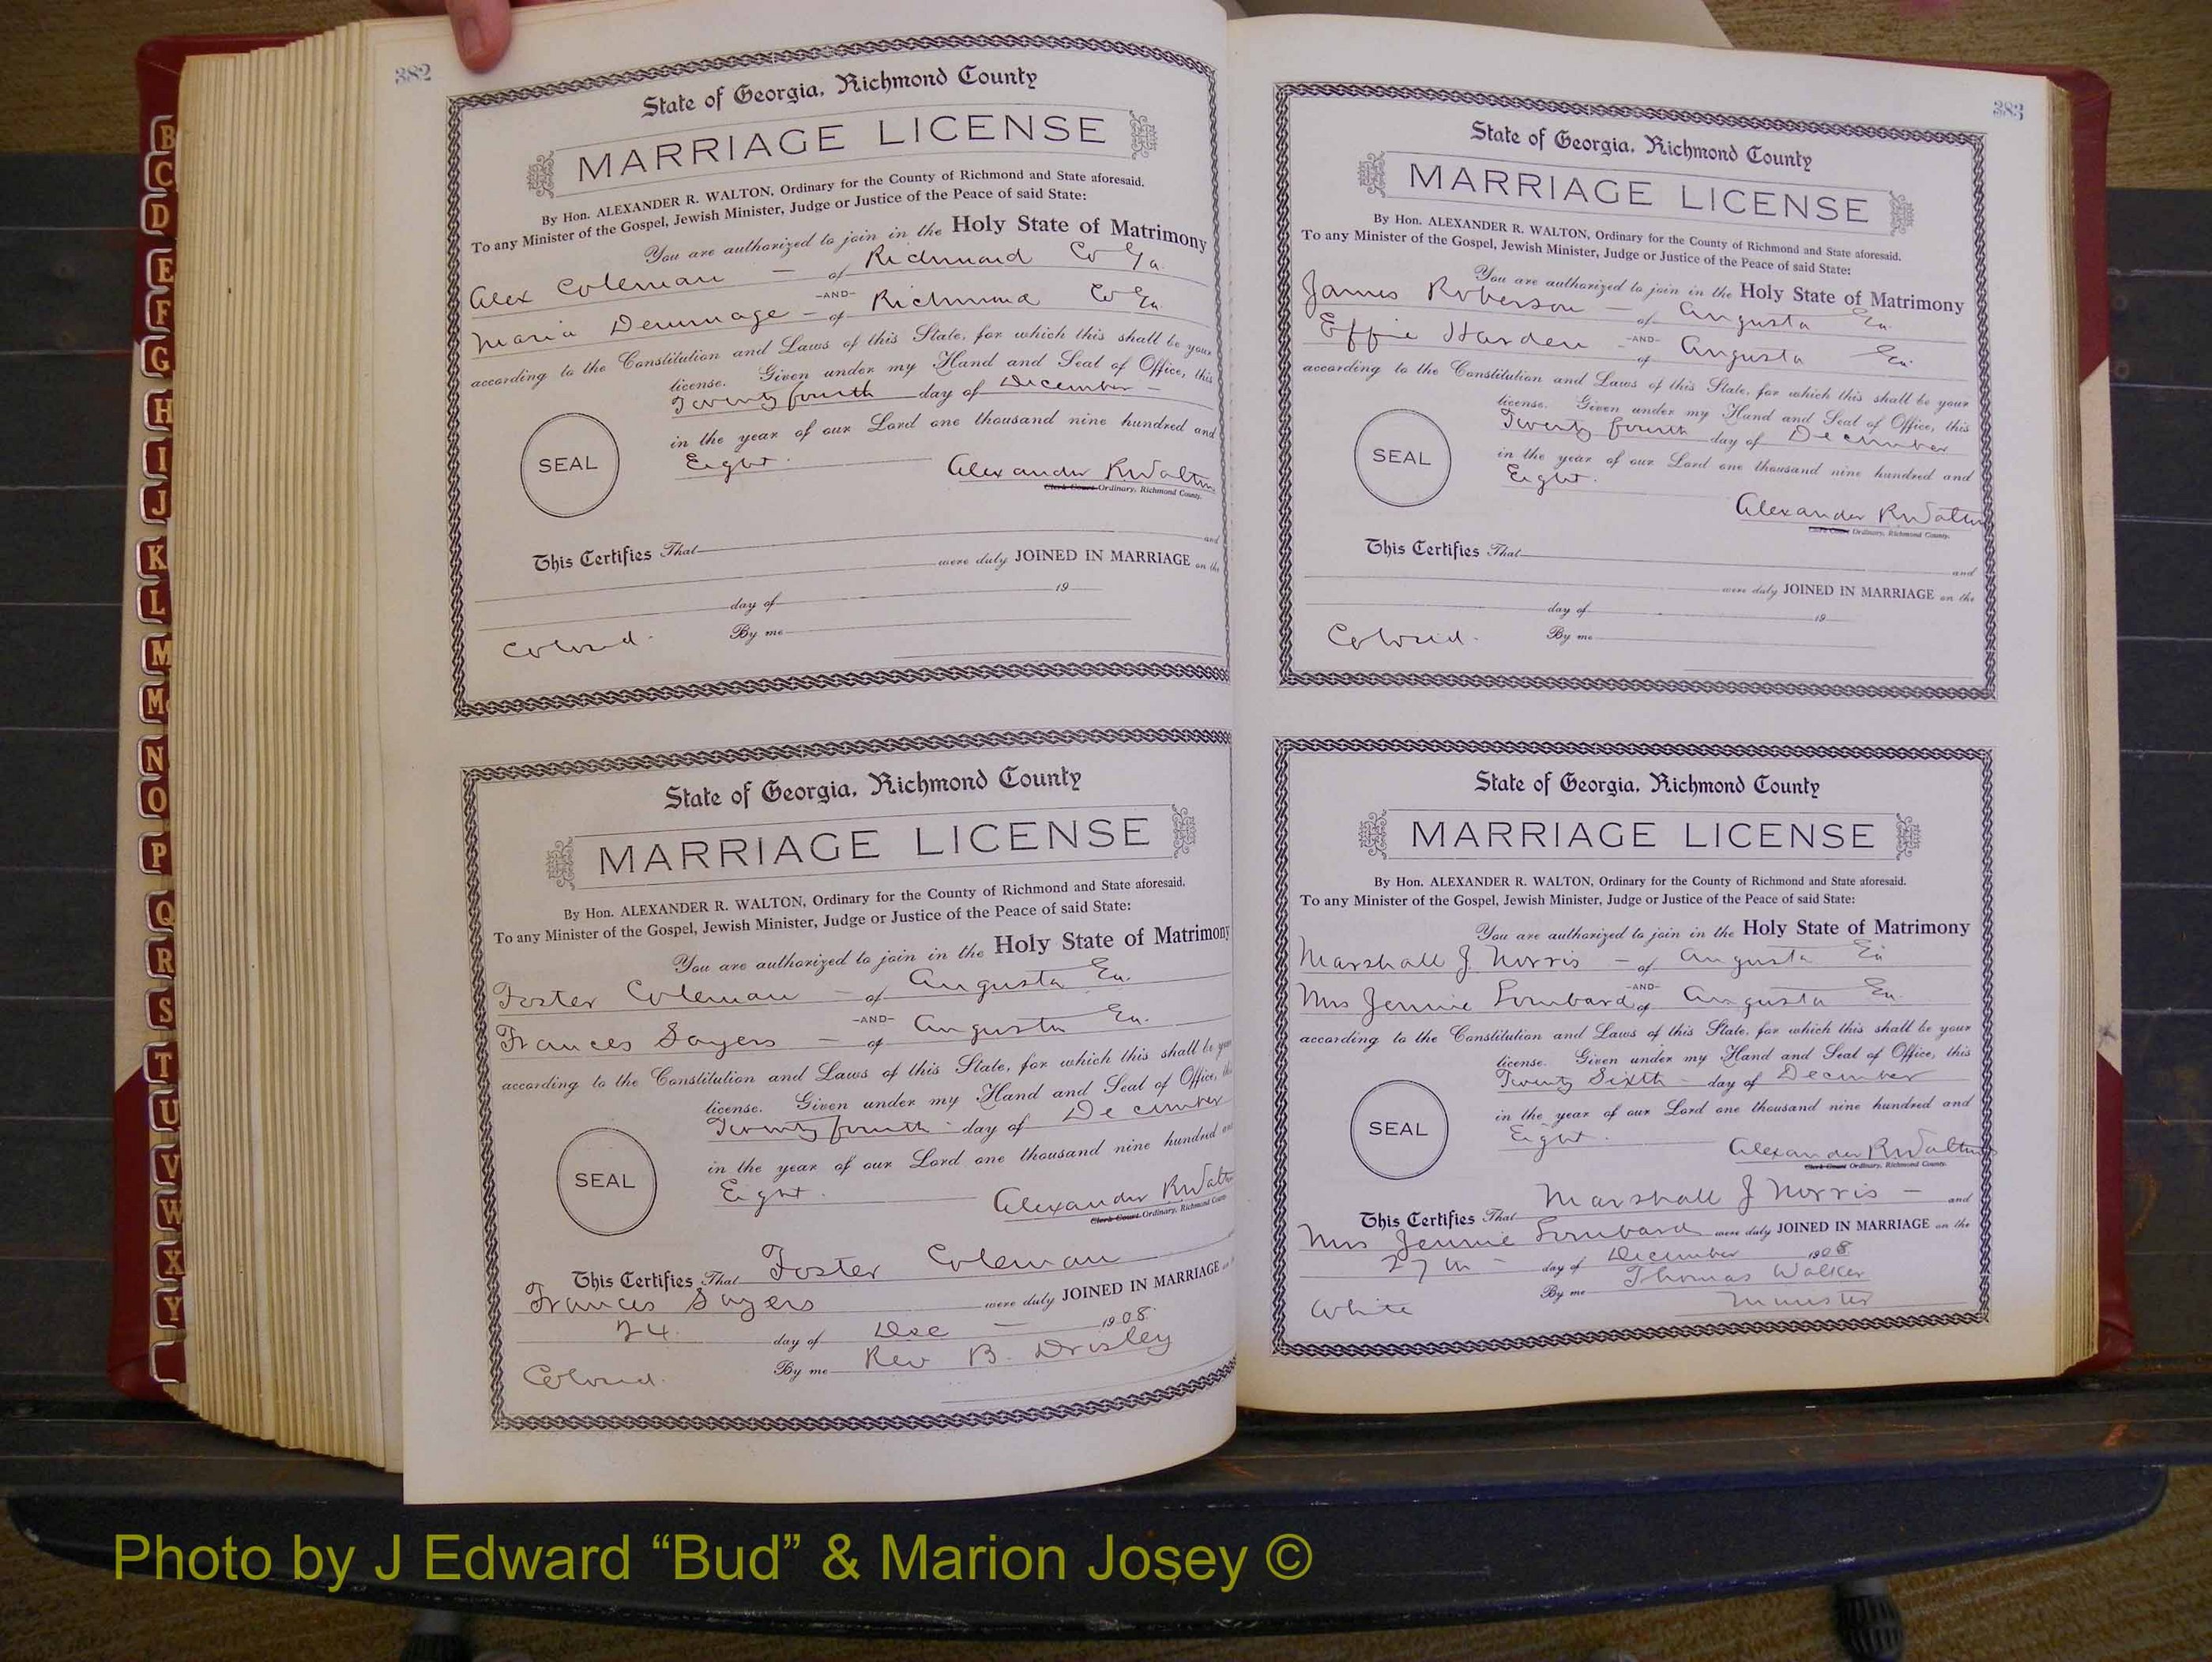 382
State of Georgia, Richmond County
MARRIAGE LICENSE
By Hon. ALEXANDER R. WALTON, Ordinary for the County of Richmond and State aforesaid.
To any Minister of the Gospel, Jewish Minister, Judge or Justice of the Peace of said State:
You are authorized to join in the Holy State of Matrimony
Alex Coleman – of Richmond Co Ga.
–AND–
Maria Demmage – of Richmond Co Ga
according to the Constitution and Laws of this State, for which this shall be your
license. Given under my Hand and Seal of Office, this
Twenty fourth day of December –
in the year of our Lord one thousand nine hundred and
SEAL
Eight. Alexander R Walton
Clerk Court Ordinary, Richmond County.
This Certifies That and
were duly JOINED IN MARRIAGE on the
day of 19
Colored. By me
State of Georgia, Richmond County
MARRIAGE LICENSE
By Hon. ALEXANDER R. WALTON, Ordinary for the County of Richmond and State aforesaid.
To any Minister of the Gospel, Jewish Minister, Judge or Justice of the Peace of said State:
You are authorized to join in the Holy State of Matrimony
Foster Coleman – of Augusta Ga.
–AND–
Frances Sayers – of Augusta Ga.
according to the Constitution and Laws of this State, for which this shall be your
license. Given under my Hand and Seal of Office, this
Twenty fourth day of December
in the year of our Lord one thousand nine hundred and
SEAL
Eight. Alexander R Walton
Clerk Court Ordinary, Richmond County
This Certifies That Foster Coleman
Frances Sayers were duly JOINED IN MARRIAGE
24 day of Dec – 1908.
Colored. By me Rev B. Drisley
383
State of Georgia, Richmond County
MARRIAGE LICENSE
By Hon. ALEXANDER R. WALTON, Ordinary for the County of Richmond and State aforesaid.
To any Minister of the Gospel, Jewish Minister, Judge or Justice of the Peace of said State:
You are authorized to join in the Holy State of Matrimony
James Roberson – of Augusta Ga.
–AND–
Effie Harden of Augusta Ga.
according to the Constitution and Laws of this State, for which this shall be your
license. Given under my Hand and Seal of Office, this
Twenty fourth day of December
in the year of our Lord one thousand nine hundred and
SEAL
Eight. Alexander R Walton
Clerk Court Ordinary, Richmond County.
This Certifies That and
were duly JOINED IN MARRIAGE on the
day of 19
Colored. By me
State of Georgia, Richmond County
MARRIAGE LICENSE
By Hon. ALEXANDER R. WALTON, Ordinary for the County of Richmond and State aforesaid.
To any Minister of the Gospel, Jewish Minister, Judge or Justice of the Peace of said State:
You are authorized to join in the Holy State of Matrimony
Marshall J. Norris – of Augusta Ga
–AND–
Mrs Jennie Lombard of Augusta Ga.
according to the Constitution and Laws of this State, for which this shall be your
license. Given under my Hand and Seal of Office, this
Twenty Sixth – day of December
in the year of our Lord one thousand nine hundred and
SEAL
Eight. Alexander R Walton
Clerk Court Ordinary, Richmond County.
This Certifies That Marshall J Norris – and
Mrs Jennie Lombard were duly JOINED IN MARRIAGE on the
27th – day of December 1908
By me Thomas Walker
White Minister
B
C
D
E
F
G
H
I
J
K
L
M
Mc
N
O
P
Q
R
S
T
U
V
W
X
Y
Photo by J Edward “Bud” & Marion Josey ©